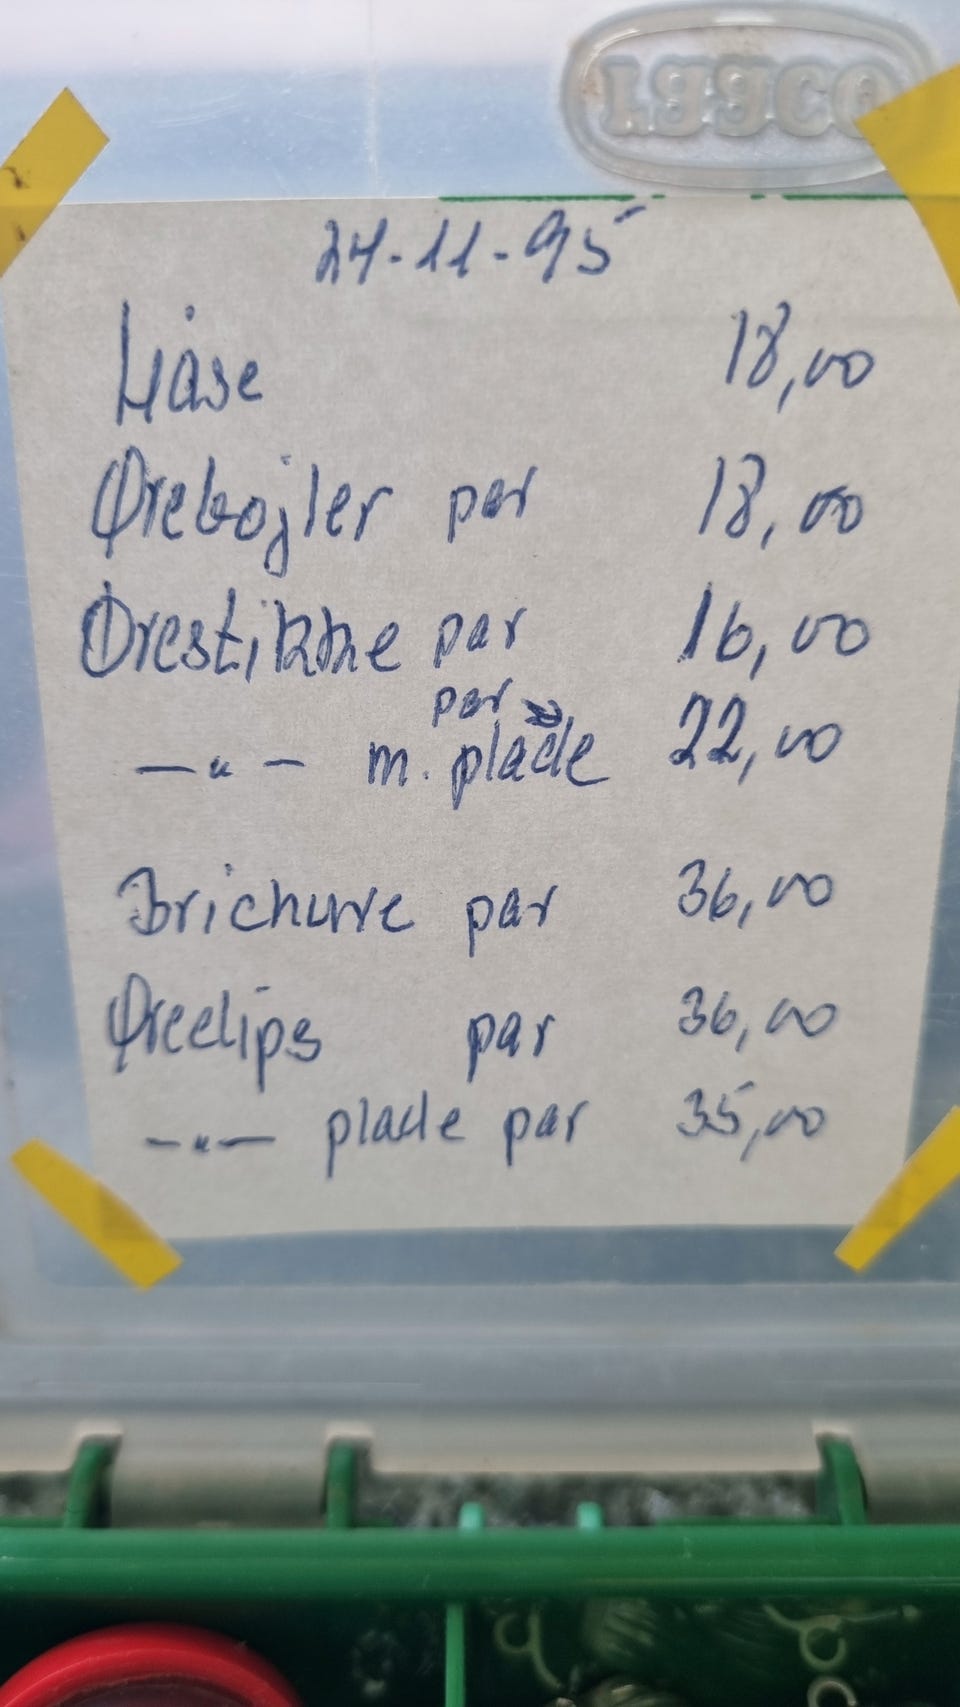 24-11-95
Låse 18,00
Ørebøjler par 18,00
Ørestikke par 16,00
par
—"— m. plade 22,00
Brichurre par 36,00
Øreclips par 36,00
—"— plade par 35,00